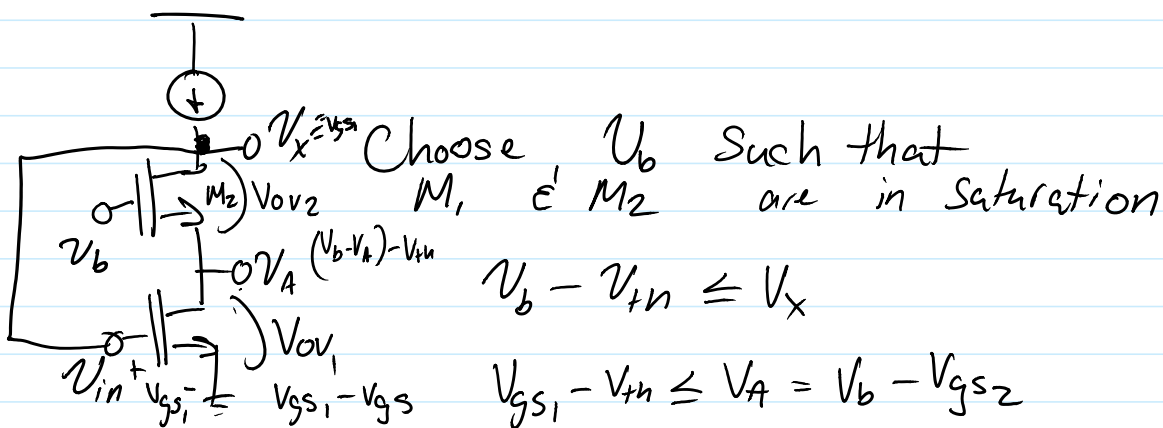 Vx=Vgs1 Choose Vb Such that
M1 & M2 are in Saturation
M2 Vov2
Vb
VA (Vb-VA)-Vth
Vb - Vth ≤ Vx
Vov1
Vin + Vgs1 - Vgs1 - Vgs
Vgs1 - Vth ≤ VA = Vb - Vgs2